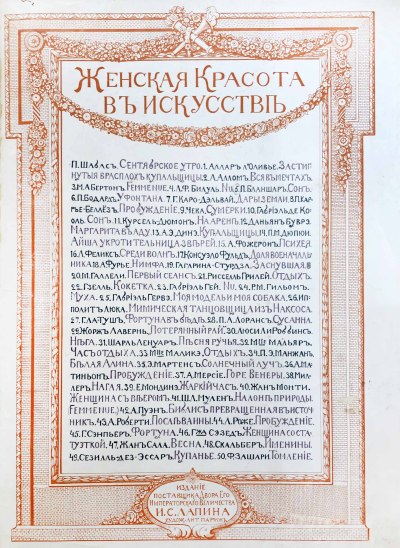 Женская Красота
въ искусствѣ
П. Шабасъ. Сентябрское утро. 1. Алларъ л'Оливье. Застиг-
нутыя врасплохъ купальщицы. 2. А. Алломъ. Вся въ мечтахъ.
3. М. А. Бертонъ. Femme nue. 4. Л. Ф. Билуль. Nu. 5. П. Бланшаръ. Сонъ.
6. П. Бодардъ. У фонтана. 7. Г. Каро-Дэльвай. Дары земли. 8. П. Кар-
рье-Беллёзъ. Пробужденіе. 9. Чека. Сумерки. 10. Габріэль де Ко-
оль. Сонъ. 11. Курсель-Дюмонъ. На аренѣ. 12. Даньянъ Буврэ.
Маргарита въ аду. 13. А. Э. Динэ. Купальщицы. 14. П. М. Дюпюи.
Айша укротительница звѣрей. 15. А. Фожеронъ. Психея.
16. Л. Феликсъ. Среди волнъ. 17. Консуэло Фульдъ. Доля военачаль-
ника. 18. А. Фурье. Нимфа. 19. Гагарина-Стурдза. Заснувшая.
20. М. Галлели. Первый сеансъ. 21. Риссель Грилей. Отдыхъ.
22. Гзелль. Кокетка. 23. Габріэль Гей. Nu. 24. Р. М. Гильомъ.
Муха. 25. Габріэль Гервэ. Моя модель и моя собака. 26. Ип-
политъ Люка. Мимическая танцовщица изъ Наксоса.
27. Глатушъ. Фортуна въ бѣдѣ. 28. П. А. Лорансъ. Сусанна.
29. Жоржъ Лавернь. Потерянный рай. 30. Люси Ли Роббинсъ.
Нѣга. 31. Шарль Ленуаръ. Пѣсня ручья. 32. Мш Мальяръ.
Часъ отдыха. 33. Мш Маликэ. Отдыхъ. 34. П. Э. Манжанъ.
Бѣлая Алина. 35. Э. Мартенсъ. Солнечный лучъ. 36. А. Ма-
тиньонъ. Пробужденіе. 37. А. Мерсіе. Горе Венеры. 38. Мил-
леръ. Нагая. 39. Е. Мондинэ. Жаркій часъ. 40. Жанъ Монти.
Женщина съ вѣеромъ. 41. Шл. Муленъ. На лонѣ природы.
Femme nue. 42. А. Пуэнъ. Библисъ превращенная въ источ-
никъ. 43. А. Роберти. Послѣ ванны. 44. А. Роже. Пробужденіе.
45. Г. Сэнпьеръ. Фортуна. 46. Гжа Сэзедъ. Женщина со ста-
туэткой. 47. Жанъ Сала. Весна. 48. Скальберъ. Именины.
49. Сезиль-дез-Эссаръ. Купанье. 50. Ф. Зашари. Томленіе.
Изданіе
поставщика Двора Его
Императорскаго Величества
И. С. Лапина